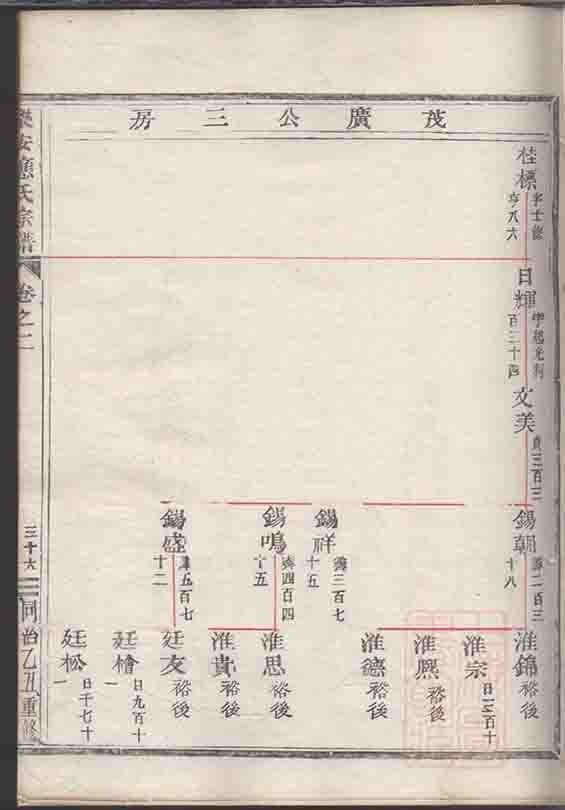 茂廣公三房
桂標
字士俊
亨八六
日輝
百三十四
文美
貞三百三
錫朝
壽二百三
十八
錫祥
壽三百七
十五
錫鳴
壽四百四
十五
錫盛
壽五百七
十二
淮錦 裕後
淮宗
淮熙 裕後
淮德 裕後
淮思 裕後
淮貴 裕後
廷友 裕後
廷檜
日九百十
一
廷松
日千七十
一
樂安應氏宗譜
卷之二
三十六
同治乙丑重修